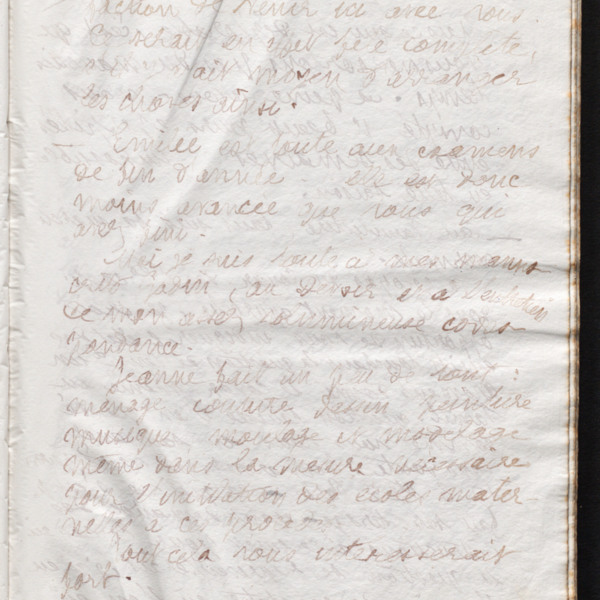 faction de venir ici avec vous.
Ce serait en effet fête complète,
ait moyen d'arranger
les choses ainsi.
Emilie est toute aux examens
de fin d'année - elle est donc
moins avancée que vous qui
avez fini.
Moi je suis toute à mes manus-
crits
ce mon assez volumineuse corres-
pondance.
Jeanne fait un peu de tout :
ménage couture dessin peinture
musique moulage et modelage
même dans la mesure nécessaire
pour l'initiation des écoles mater-
nelles à ces
Tout cela vous intéresserait
fort.